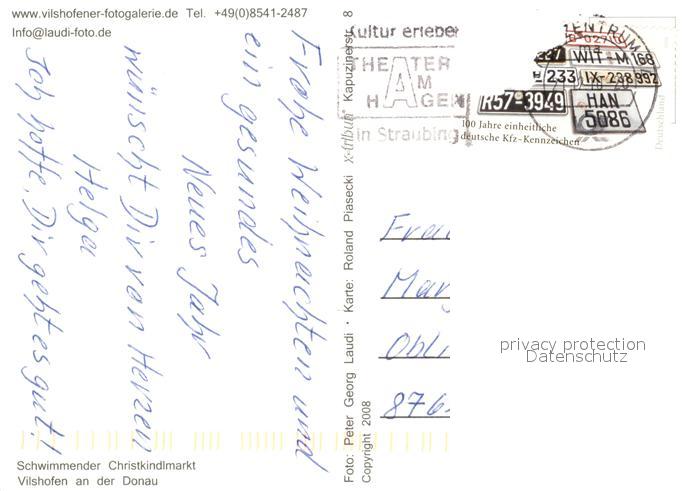 www.vilshofener-fotogalerie.de Tel. +49(0)8541-2487
Info@laudi-foto.de
Frohe Weihnachten und
ein gesundes
Neues Jahr
wünscht Dir von Herzen
Helga
Ich hoffe, Dir geht es gut!
Schwimmender Christkindlmarkt
Vilshofen an der Donau
Foto: Peter Georg Laudi · Karte: Roland Piasecki x-tribun® Kapuzinerstr. 8
Copyright 2008
Kultur erleben
THEATER
AM
HAGEN
in Straubing
ZENTRUM
WIT-M 168
233 IX-238 992
R57-3949
HAN
5086
100 Jahre einheitliche
deutsche Kfz-Kennzeichen
Deutschland
Frau
privacy protection
Datenschutz